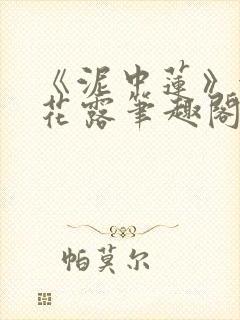 《泥中莲》
花露筆趣閣
帕莫尔